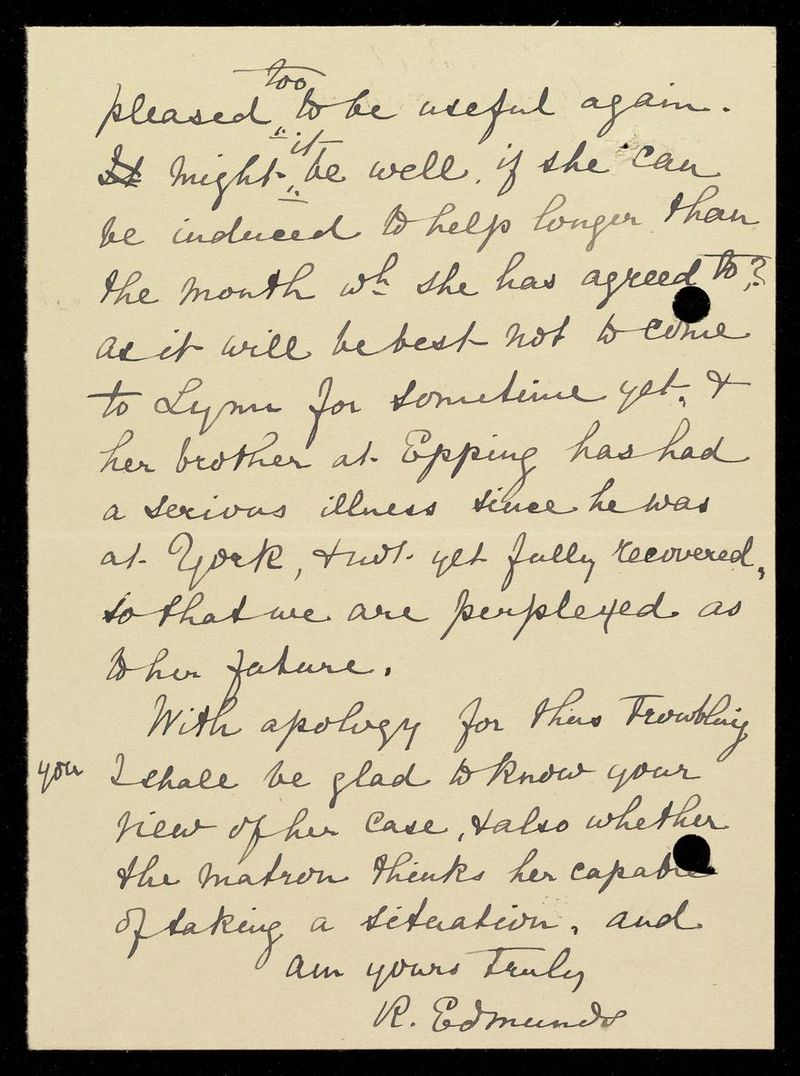 pleased too to be useful again.
It might it be well, if she can
be induced to help longer than
the month wh she has agreed to?
as it will be best not to come
to Lynn for sometime yet, &
her brother at Epping has had
a serious illness since he was
at York, & not yet fully recovered,
so that we are perplexed as
to her future.
With apology for thus troubling
you I shall be glad to know your
view of her case, & also whether
the matron thinks her capable
of taking a situation, and
am yours truly
R. Edmunds